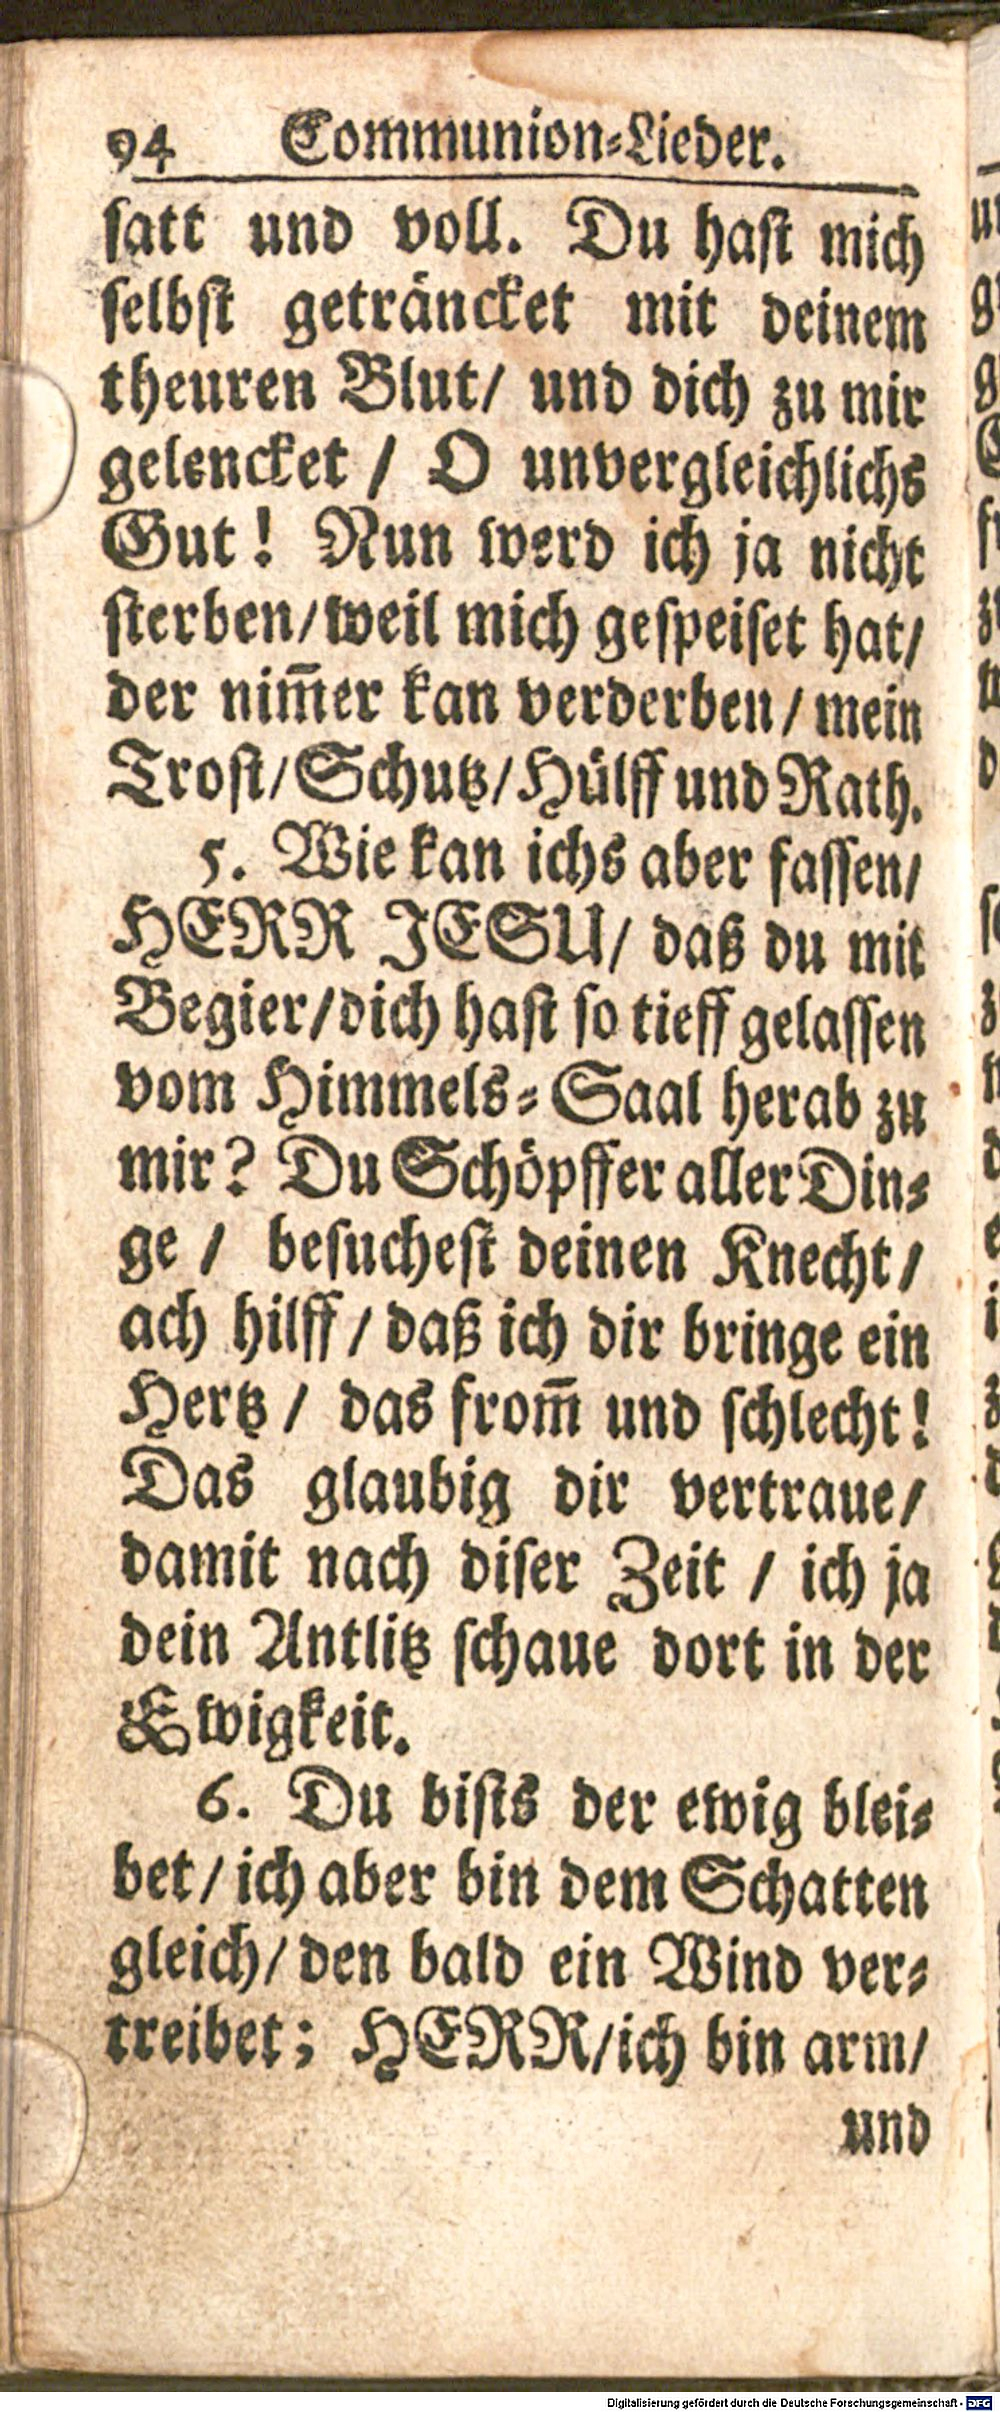 94 Communion-Lieder.
ſatt und voll. Du haſt mich
ſelbſt geträncket mit deinem
theuren Blut/ und dich zu mir
gelencket / O unvergleichlichs
Gut! Nun werd ich ja nicht
ſterben/weil mich geſpeiſet hat/
der nim̄er kan verderben / mein
Troſt/Schutz/Hülff und Rath.
5. Wie kan ichs aber faſſen/
HERR JESU/ daß du mit
Begier/dich haſt ſo tieff gelaſſen
vom Himmels-Saal herab zu
mir? Du Schöpffer aller Din-
ge / beſucheſt deinen Knecht/
ach hilff/daß ich dir bringe ein
Hertz / das from̄ und ſchlecht!
Das glaubig dir vertraue/
damit nach diſer Zeit / ich ja
dein Antlitz ſchaue dort in der
Ewigkeit.
6. Du biſts der ewig blei-
bet/ich aber bin dem Schatten
gleich/den bald ein Wind ver-
treibet; HERR/ich bin arm/
und
Digitalisierung gefördert durch die Deutsche Forschungsgemeinschaft - DFG